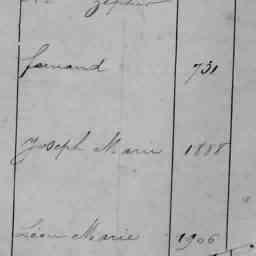 Zéphir
fernand 731
Joseph Marie 1888
Léon Marie 1906